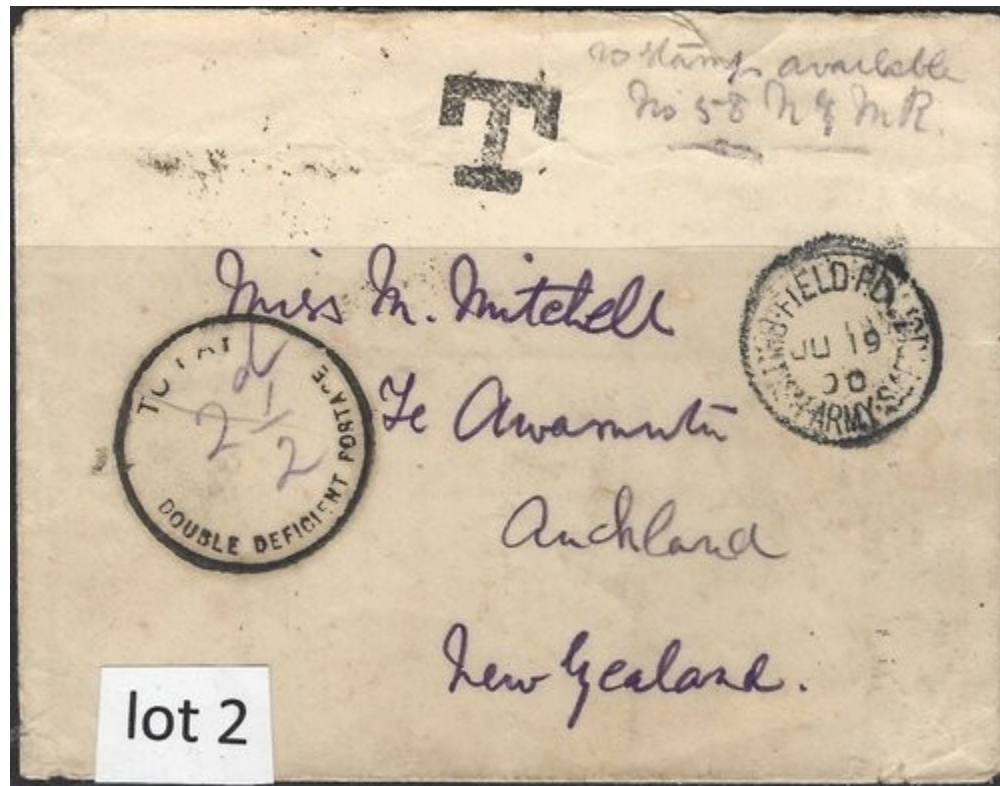 no stamps available
No 58 N Z M R.
T
Miss M. Mitchell
Te Awamutu
Auckland
New Zealand.
FIELD POST
BRITISH ARMY S.AFRICA
JU 19
00
TO PAY
d
2 1/2
DOUBLE DEFICIENT POSTAGE
lot 2